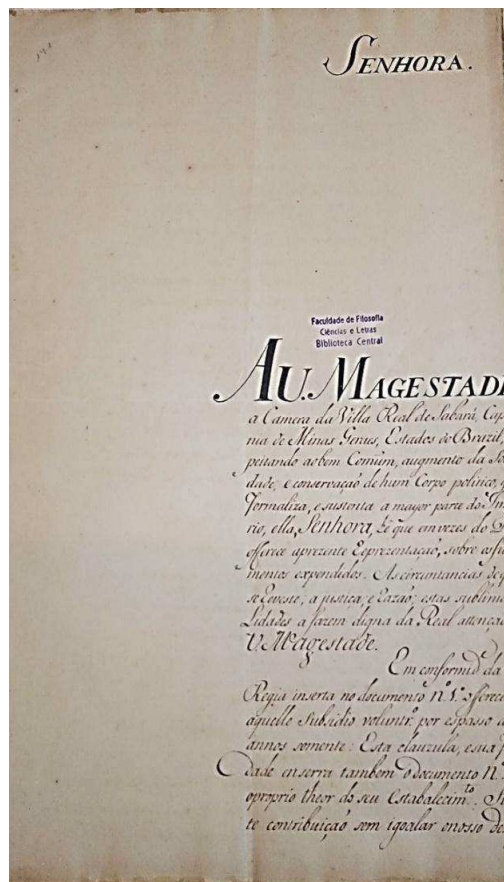 SENHORA.
Faculdade de Filosofia
Ciências e Letras
Biblioteca Central
A U. MAGESTADE
a Camera da Villa Real de Sabará, Cap
nia de Minas Geraes, Estados do Brazil,
peitando ao bem Comum, augmento da So
dade, e conservaçaõ de hum Corpo politico, q
formaliza, e sustenta a mayor parte do Im
rio, ella, Senhora, hé que em vezes do
offerece aprezente Reprezentaçaõ, sobre os fu
mentos expendidos. As circunstancias de q
se Reveste; a justiça, e Razaõ; estas sublime
Lidades a fazem digna da Real attençaõ
V. Magestade.
Em conformid.e da
Regia inserta no documento n.º 1.º offerece
aquelle Subsidio voluntr.º por espasso d
annos somente: Esta clauzula, e sua
dade enserra tambem o documento N.
oproprio theor do seu Estabalecim.to.
te contribuiçaõ sem igoalar onosso de